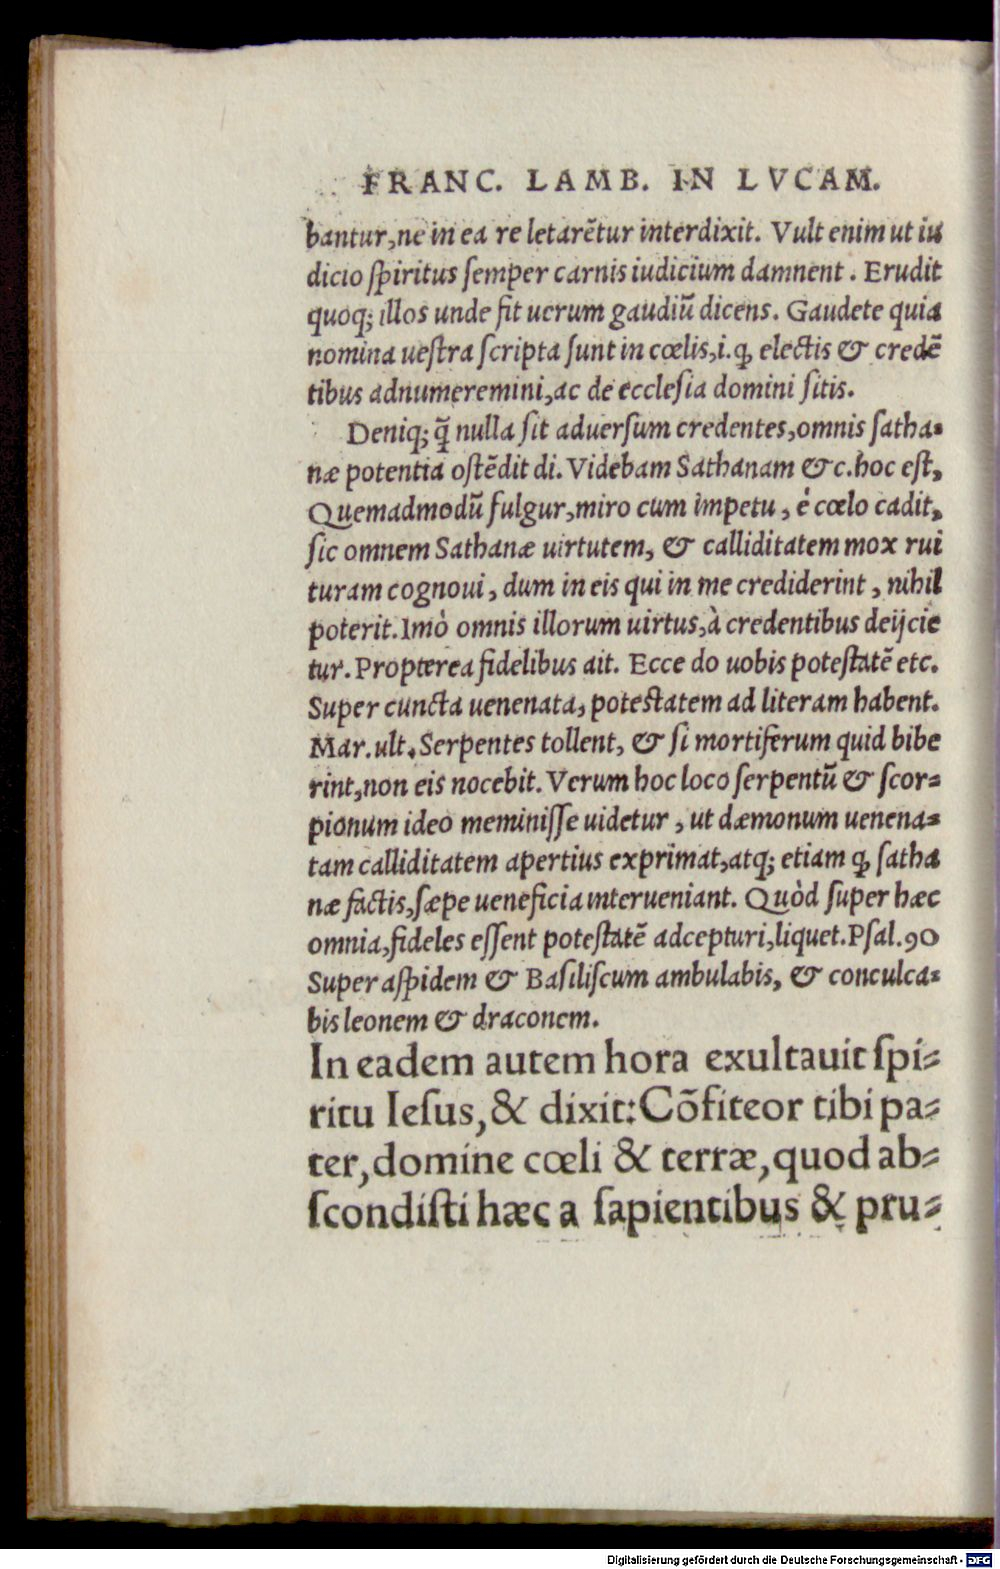 FRANC. LAMB. IN LVCAM.
bantur,ne in ea re letarẽtur interdixit. Vult enim ut iu
dicio ſpiritus ſemper carnis iudicium damnent. Erudit
quoq; illos unde fit uerum gaudiũ dicens. Gaudete quia
nomina ueſtra ſcripta ſunt in cœlis,i.ꝙ electis & credẽ
tibus adnumeremini,ac de eccleſia domini ſitis.
Deniq; q̃ nulla ſit aduerſum credentes,omnis ſatha-
næ potentia oſtẽdit di. Videbam Sathanam & c. hoc eſt,
Quemadmodũ fulgur,miro cum impetu, è cœlo cadit,
ſic omnem Sathanæ uirtutem, & calliditatem mox rui
turam cognoui, dum in eis qui in me crediderint, nihil
poterit. Imò omnis illorum uirtus,à credentibus deijcie
tur. Propterea fidelibus ait. Ecce do uobis poteſtatẽ etc.
Super cuncta uenenata, poteſtatem ad literam habent.
Mar. ult. Serpentes tollent, & ſi mortiferum quid bibe
rint,non eis nocebit. Verum hoc loco ſerpentũ & ſcor-
pionum ideo meminiſſe uidetur, ut dæmonum uenena-
tam calliditatem apertius exprimat,atq; etiam ꝙ ſatha
næ factis,ſæpe ueneficia interueniant. Quòd ſuper hæc
omnia,fideles eſſent poteſtatẽ adcepturi,liquet. Pſal. 90
Super aſpidem & Baſiliſcum ambulabis, & conculca-
bis leonem & draconem.
In eadem autem hora exultauit ſpi-
ritu Ieſus,& dixit: Cõfiteor tibi pa-
ter,domine cœli & terræ,quod ab-
ſcondiſti hæc a ſapientibus & pru-
Digitalisierung gefördert durch die Deutsche Forschungsgemeinschaft - DFG